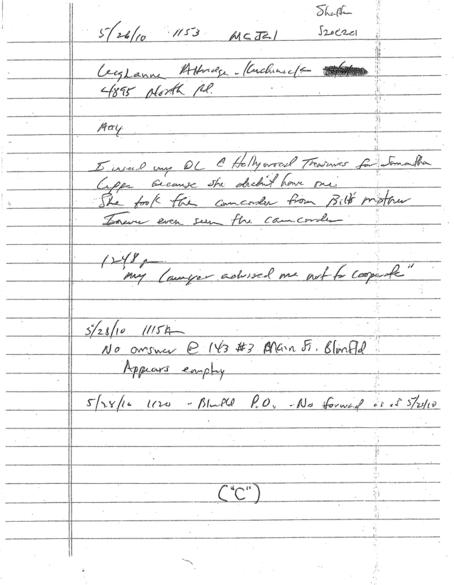 5/26/10 1153 McJal
4895 North Rd.
I used my DL @ Hollywood for Samantha
because she didn't have one.
She took the camcorder from Bill's mother
I never even seen the camcorder
1248 p
"my lawyer advised me not to cooperate"
5/28/10 1115A
No answer @ 143 #3 Main St. Blmfld
Appears empty
5/28/10 1120 - Blmfld P.O. - No forward as of 5/28/10
("C")